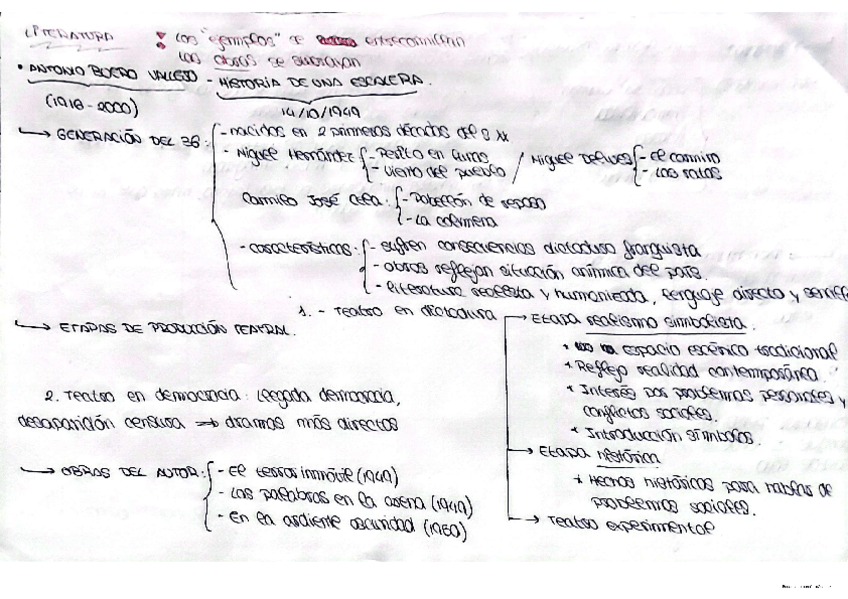 LITERATURA : Los "ejemplos" se entrecomillan
Las obras se subrayan
• ANTONIO BUERO VALLEJO - HISTORIA DE UNA ESCALERA.
(1916-2000) 14/10/1949
→ GENERACIÓN DEL 36: - nacidos en 2 primeras décadas del S XX
- Miguel Hernández - Perito en lunas / Miguel Delibes - El camino
- Viento del pueblo - Las ratas
Camilo José Cela: - Pabellón de reposo
- La colmena
- características: - sufren consecuencias dictadura franquista
- obras reflejan situación anímica del país.
- literatura realista y humanizada, lenguaje directo y
→ ETAPAS DE PRODUCCIÓN TEATRAL.
1. - Teatro en dictadura → Etapa realismo simbolista.
* espacio escénico tradicional
* Reflejo realidad contemporánea.
* Interés por problemas personales y
conflictos sociales.
* Introducción símbolos.
→ Etapa histórica
* Hechos históricos para hablar de
problemas sociales.
→ Teatro experimental
2. Teatro en democracia: llegada democracia,
desaparición censura ⇒ dramas más directos
→ OBRAS DEL AUTOR: - El terror inmóvil (1949)
- Las palabras en la arena (1949)
- En la ardiente oscuridad (1950)